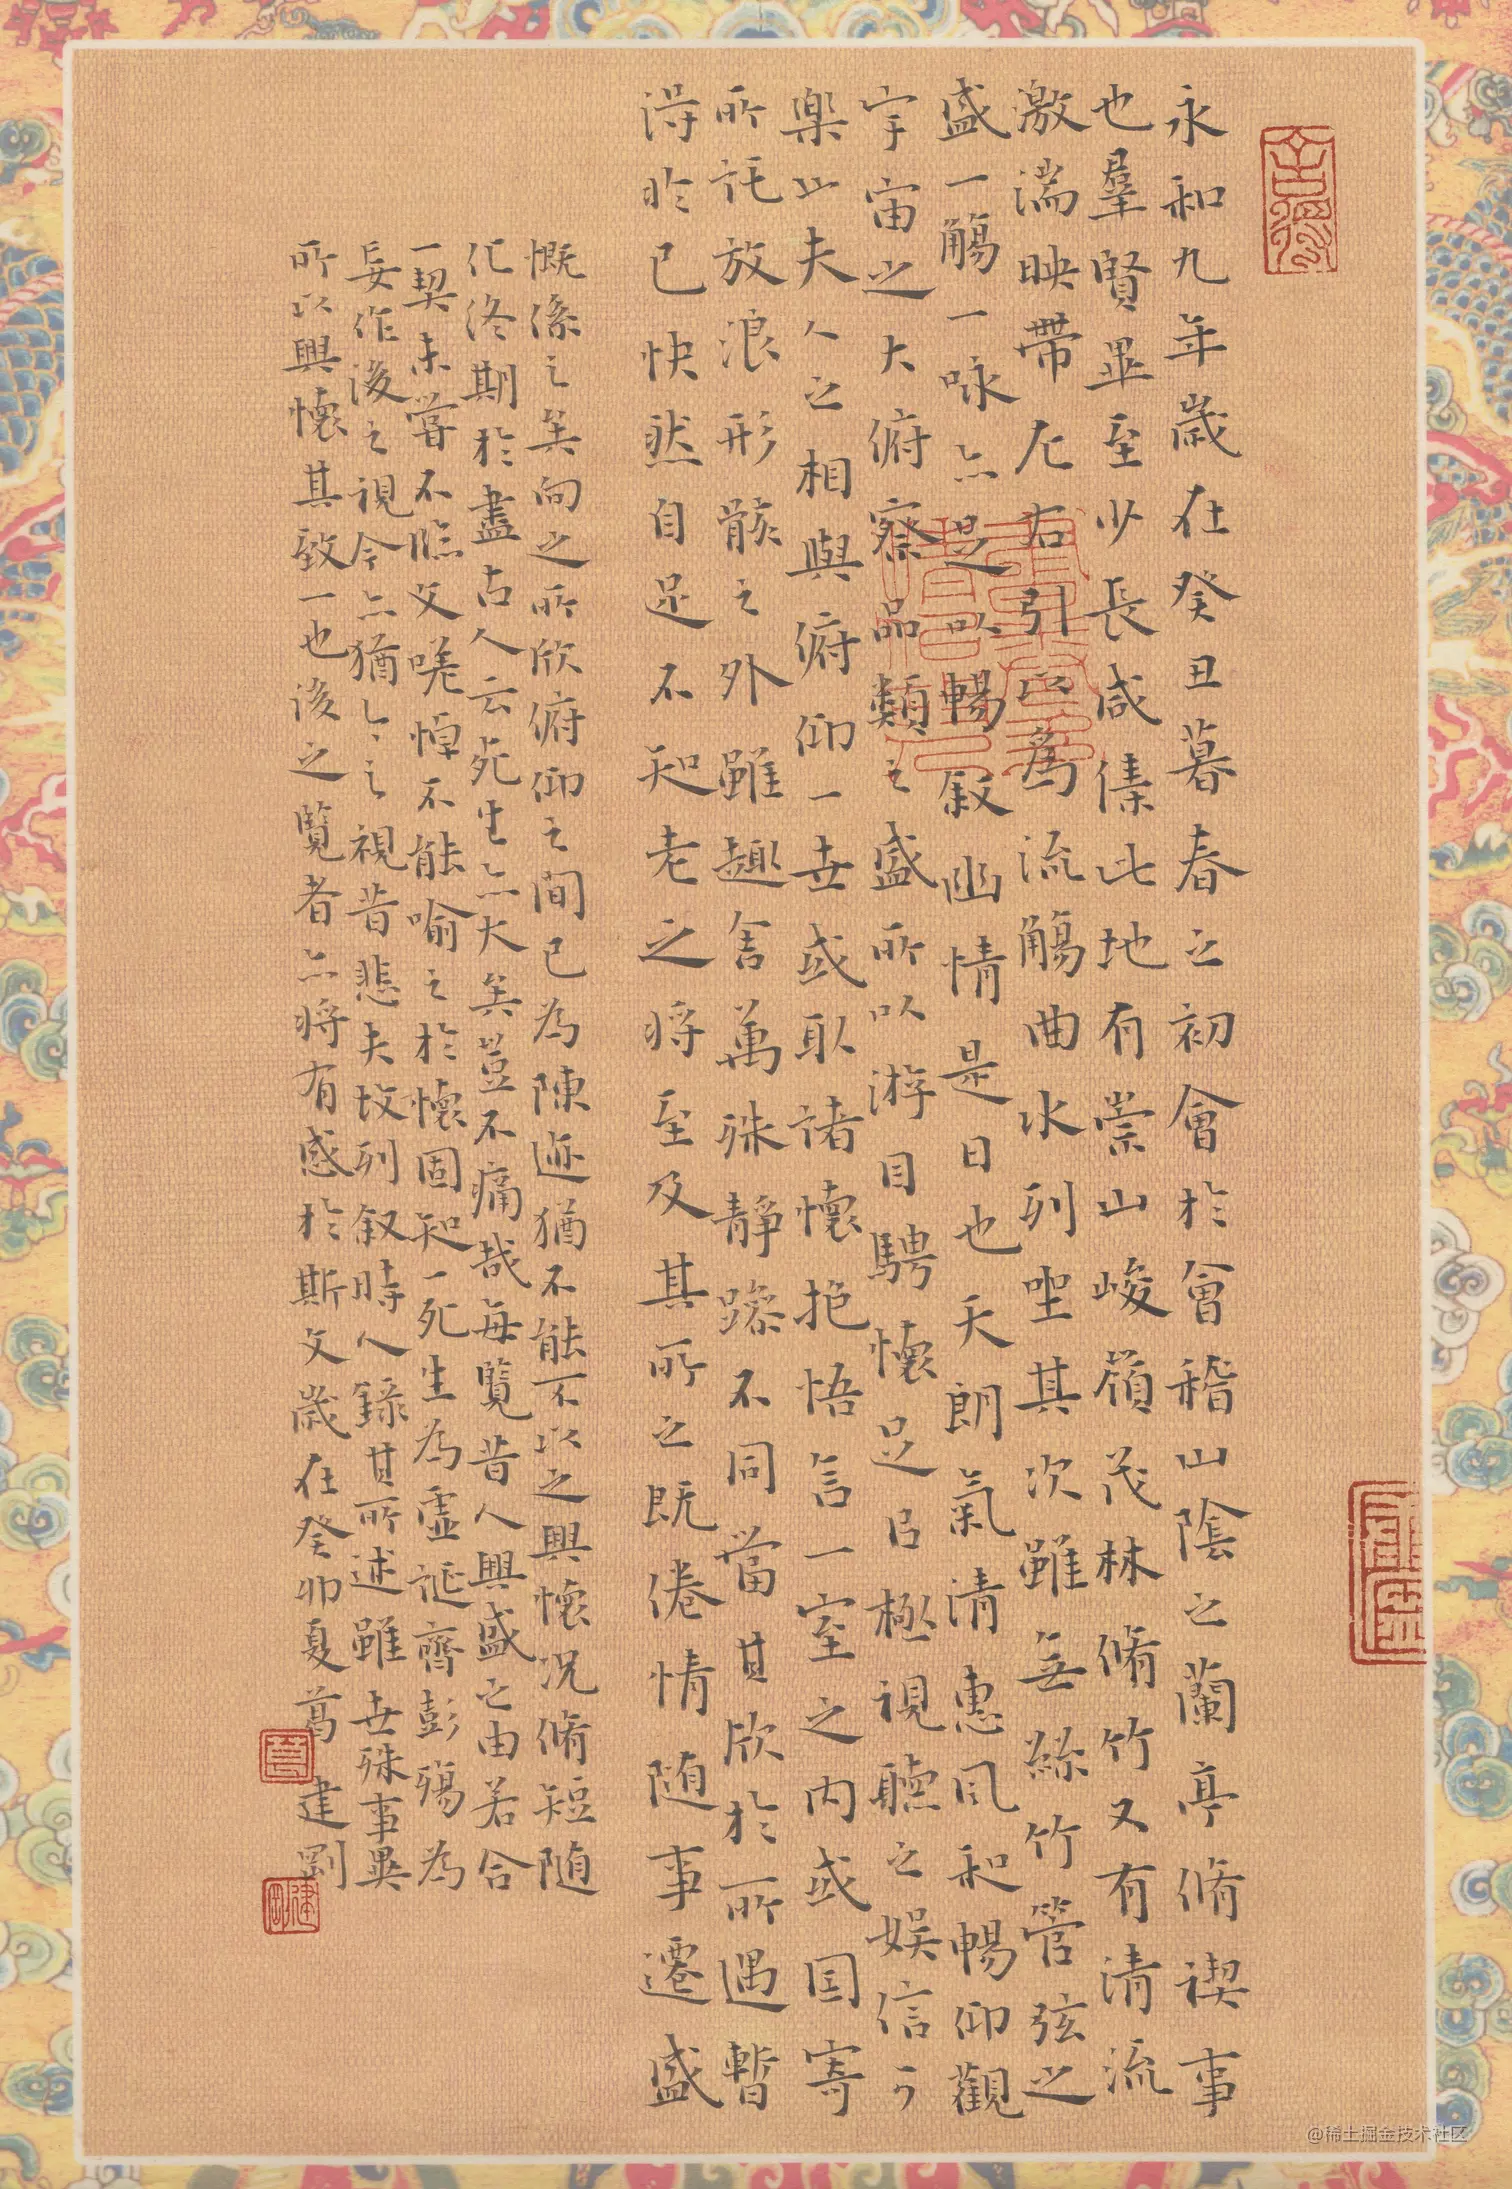 永和九年歲在癸丑暮春之初會於會稽山陰之蘭亭脩禊事
也羣賢畢至少長咸集此地有崇山峻嶺茂林脩竹又有清流
激湍映帶左右引以為流觴曲水列坐其次雖無絲竹管弦之
盛一觴一詠亦足以暢敘幽情是日也天朗氣清惠風和暢仰觀
宇宙之大俯察品類之盛所以游目騁懷足以極視聽之娛信可
樂也夫人之相與俯仰一世或取諸懷抱悟言一室之內或因寄
所託放浪形骸之外雖趣舍萬殊靜躁不同當其欣於所遇暫
得於己快然自足不知老之將至及其所之既倦情隨事遷盛
慨係之矣向之所欣俯仰之間已為陳迹猶不能不以之興懷況脩短隨
化終期於盡古人云死生亦大矣豈不痛哉每覽昔人興盛之由若合
一契未嘗不臨文嗟悼不能喻之於懷固知一死生為虛誕齊彭殤為
妄作後之視今亦猶今之視昔悲夫故列叙時人錄其所述雖世殊事異
所以興懷其致一也後之覽者亦將有感於斯文歲在癸卯夏葛建剛
建剛
@稀土掘金技术社区